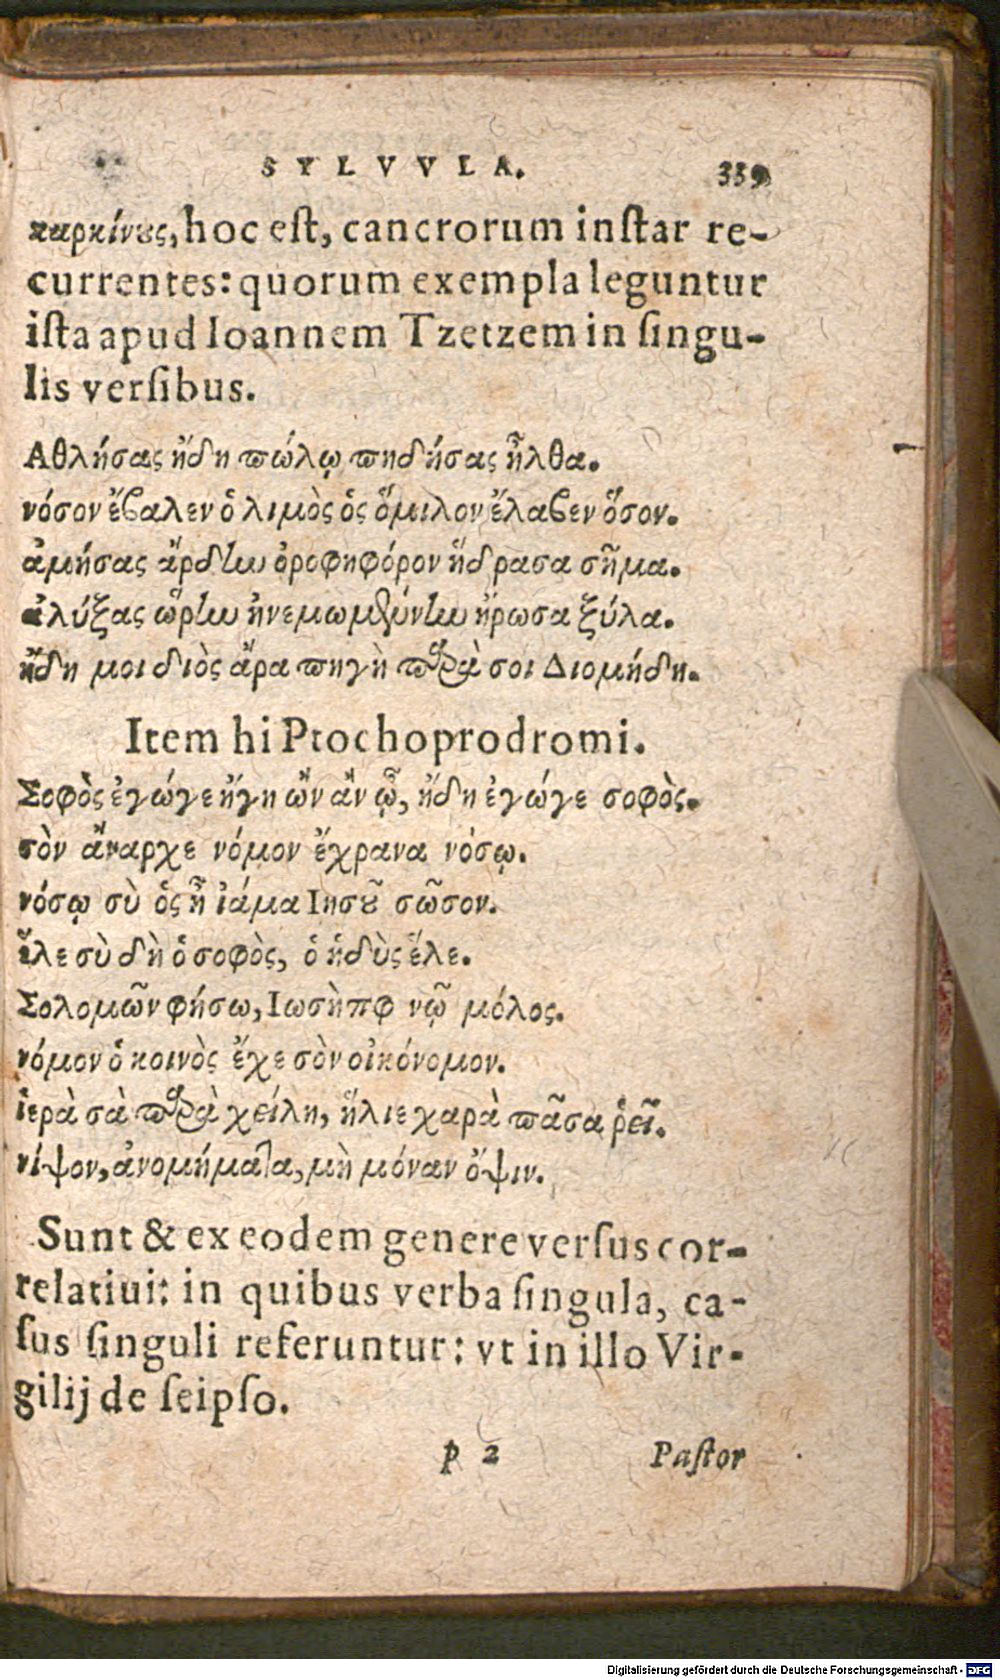 SYLVVLA. 339
καρκίνους, hoc est, cancrorum instar re-
currentes: quorum exempla leguntur
ista apud Ioannem Tzetzem in singu-
lis versibus.
Αθλήσας ἤδη πώλῳ πηδήσας ἦλθα.
νόσον ἔβαλεν ὁ λιμὸς ὁς ὅμιλον ἔλαβεν ὅσον.
ἀμήσας ἄρδην ὀροφηφόρον ἥδρασα σῆμα.
ἀλύξας ὦρην ἠνεμωμένην ἤρωσα ξύλα.
ἤδη μοι διὸς ἄρα πηγὴ παρὰ σοι Διομήδη.
Item hi Ptochoprodromi.
Σοφὸς ἐγώγε ἤγη ὢν ἂν ᾧ, ἤδη ἐγώγε σοφὸς.
σὸν ἄναρχε νόμον ἔχρανα νόσῳ.
νόσῳ σὺ ὁς ἦ ἰάμα Ιησοῦ σῶσον.
ἕλε σὺ δὴ ὁ σοφὸς, ὁ ἡδὺς ἕλε.
Σολομῶν φήσω, Ιωσὴπφ νῷ μόλος.
νόμον ὁ κοινὸς ἔχε σὸν οἰκόνομον.
ἱερὰ σὰ παρὰ χείλη, ἥλιε χαρὰ πᾶσα ῥεῖ.
νίψον, ἀνομήματα, μὴ μόναν ὄψιν.
Sunt & ex eodem genere versus cor-
relatiui: in quibus verba singula, ca-
sus singuli referuntur: vt in illo Vir-
gilij de seipso.
p 2 Pastor
Digitalisierung gefördert durch die Deutsche Forschungsgemeinschaft - DFG